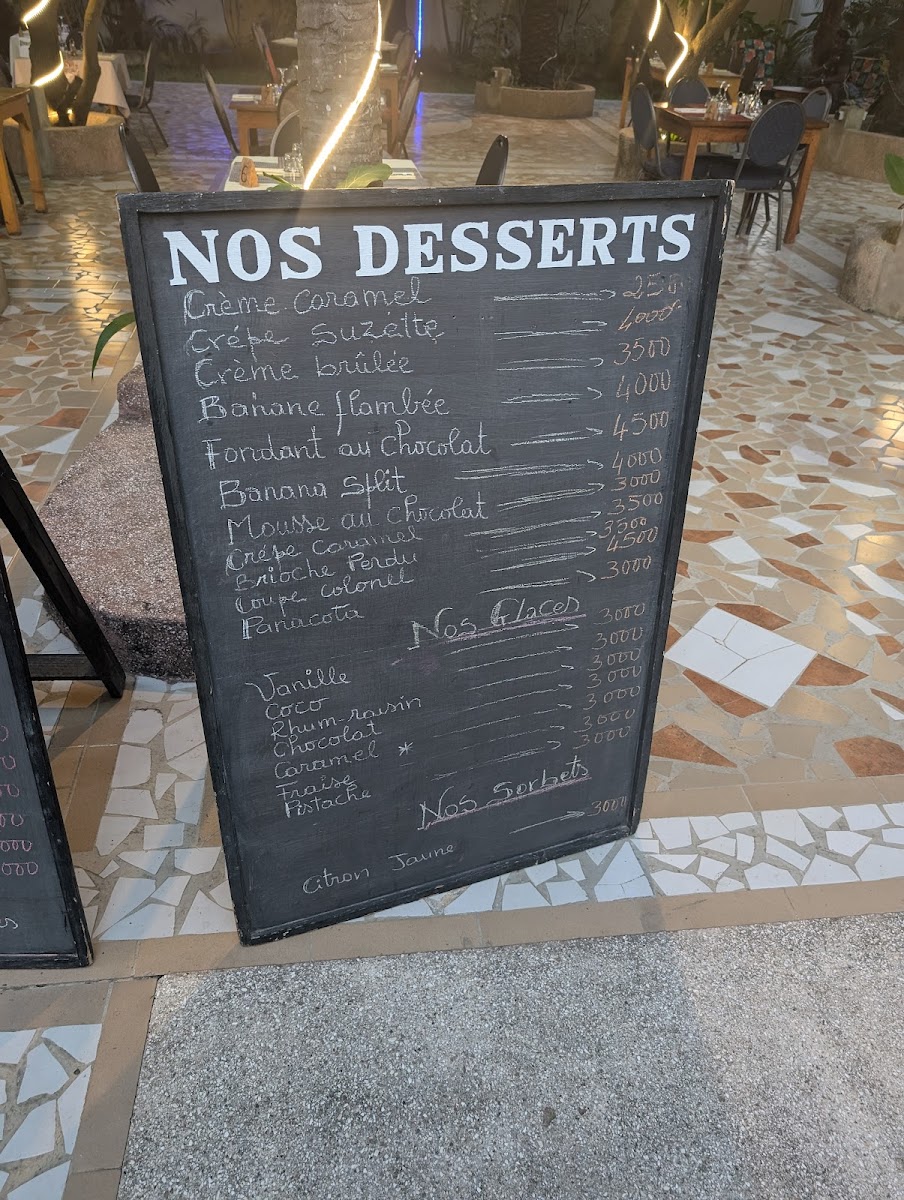 NOS DESSERTS
Crème caramel 2500
Crêpe Suzette 4000
Crème brûlée 3500
Banane flambée 4000
Fondant au chocolat 4500
Banana Split 4000
Mousse au chocolat 3000
Crêpe caramel 3500
Brioche Perdu 3500
Coupe colonel 4500
Panacota 3000
Nos Glaces
Vanille 3000
Coco 3000
Rhum-raisin 3000
Chocolat 3000
Caramel * 3000
Fraise 3000
Pistache 3000
Nos Sorbets
Citron Jaune 3000